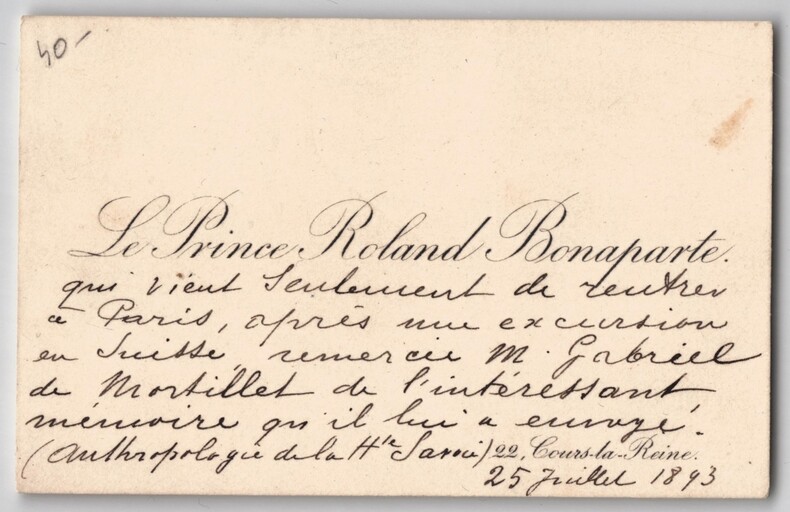 40-
Le Prince Roland Bonaparte.
qui vient seulement de rentrer
à Paris, après une excursion
en Suisse, remercie M. Gabriel
de Mortillet de l'intéressant
mémoire qu'il lui a envoyé.
(Anthropologie de la Hte Savoie) 22, Cours-la-Reine.
25 Juillet 1893